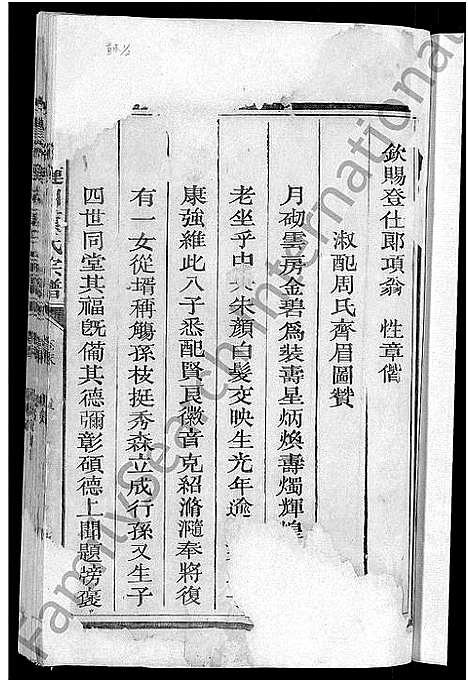 欽賜登仕郎項翁 性章偕
淑配周氏齊眉圖贊
月砌雲房金碧為裝壽星炳煥壽燭輝煌
老坐乎中 朱顏白髮交映生光年逾
康強維此八子悉配賢良徽音克紹滫瀡奉將復
有一女從壻稱觴孫枝挺秀森立成行孫又生子
四世同堂其福既備其德彌彰碩德上聞題榜褒
氏宗譜
Familysearch International